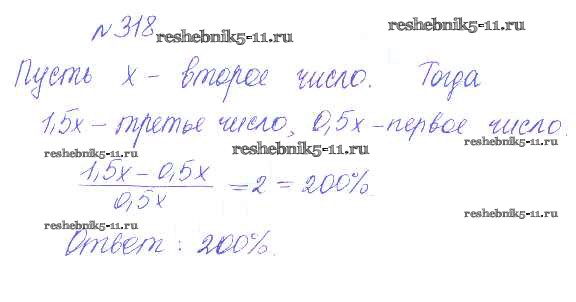 №318
reshebnik5-11.ru
reshebnik5-11.ru
Пусть x - второе число. Тогда
1,5x - третье число, 0,5x - первое число.
reshebnik5-11.ru
reshebnik5-11.ru
reshebnik5-11.ru
1,5x - 0,5x
0,5x
= 2 = 200%
reshebnik5-11.ru
reshebnik5-11.ru
Ответ: 200%.